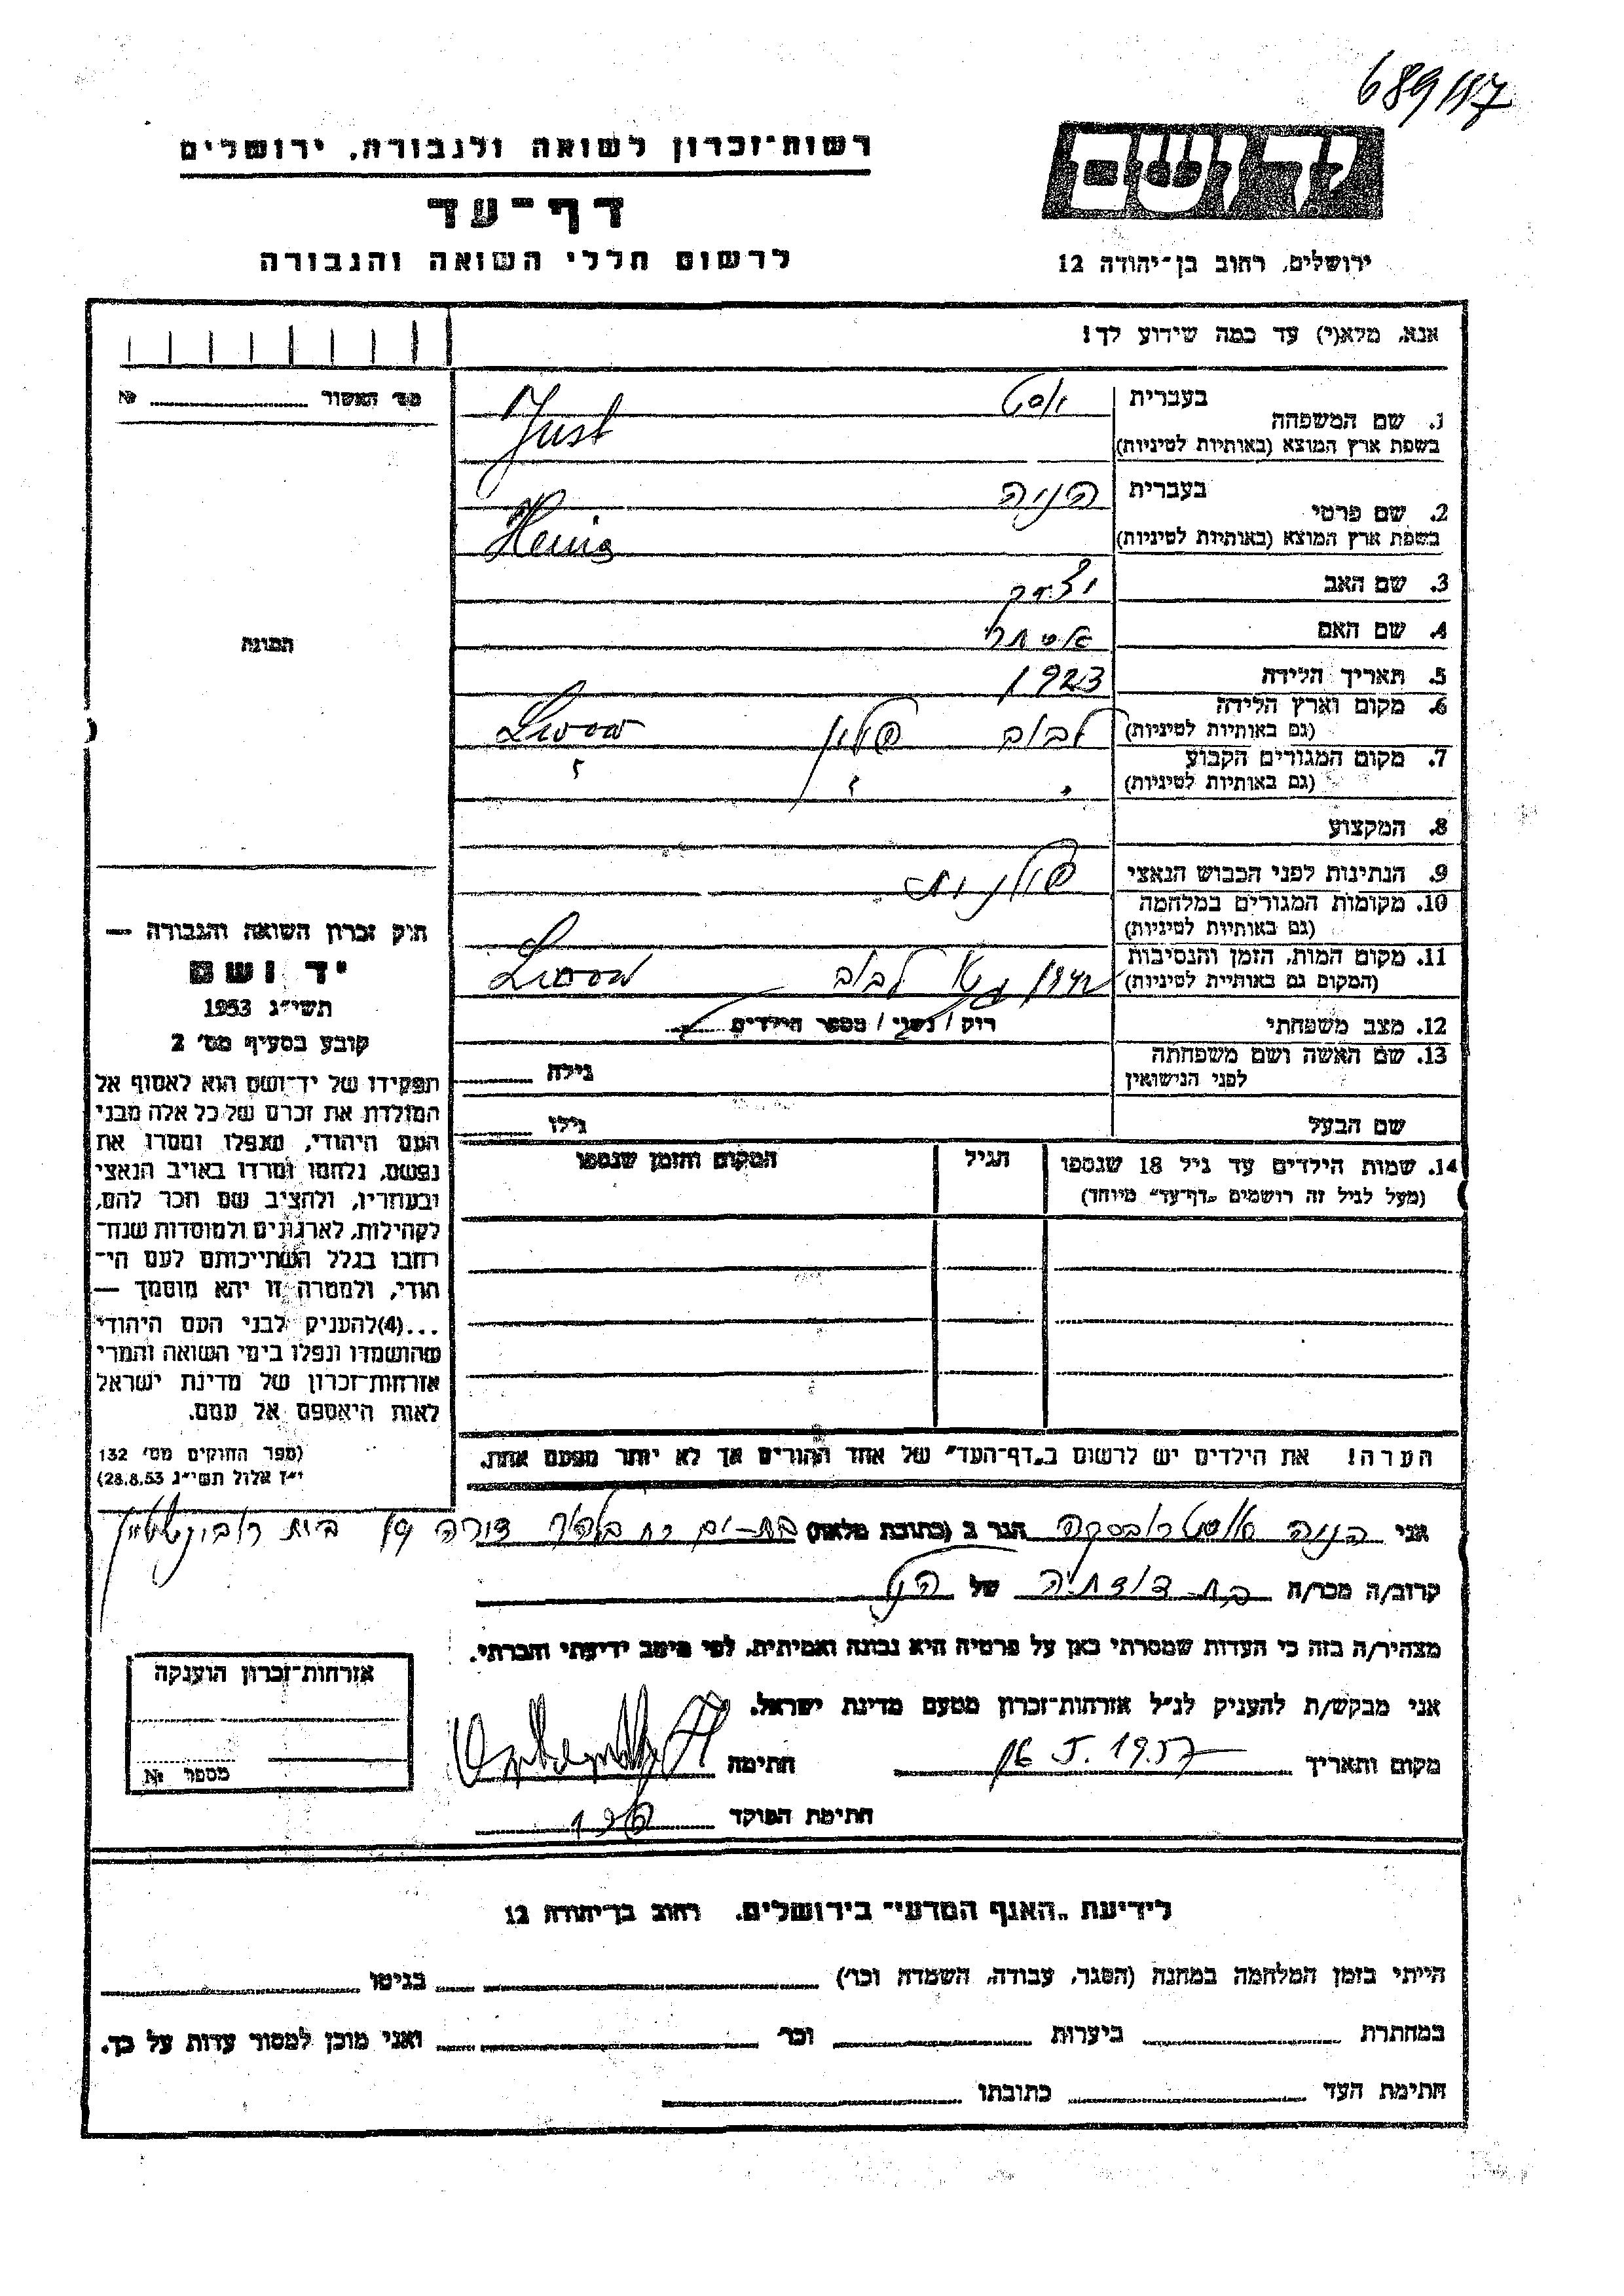 689/117
רשות-זכרון לשואה ולגבורה, ירושלים
דף-עד
לרשום חללי השואה והגבורה
יד ושם
ירושלים, רחוב בן-יהודה 12
אנא, מלא(י) עד כמה שידוע לך!
מס' האשור № 
1. שם המשפחה בעברית יוסט
בשפת ארץ המוצא (באותיות לטיניות) Just
2. שם פרטי בעברית הניה
בשפת ארץ המוצא (באותיות לטיניות) Henia
3. שם האב יצחק
4. שם האם אסתר
5. תאריך הלידה 1923
6. מקום וארץ הלידה (גם באותיות לטיניות) לבוב פולין Lwow
7. מקום המגורים הקבוע (גם באותיות לטיניות) " " "
8. המקצוע
9. הנתינות לפני הכבוש הנאצי פולנית
10. מקומות המגורים במלחמה (גם באותיות לטיניות)
11. מקום המות, הזמן והנסיבות (המקום גם באותיות לטיניות) גטו לבוב Lwow
12. מצב משפחתי רוק / נשוי / מספר הילדים
13. שם האשה ושם משפחתה לפני הנישואין גילה
שם הבעל גילו
14. שמות הילדים עד גיל 18 שנספו
(מעל לגיל זה רושמים "דף-עד" מיוחד)
הגיל
המקום והזמן שנספו
הערה! את הילדים יש לרשום ב"דף-העד" של אחד ההורים אך לא יותר מפעם אחת.
התמונה
חוק זכרון השואה והגבורה —
יד ושם
תשי"ג 1953
קובע בסעיף מס' 2
תפקידו של יד-ושם הוא לאסוף אל
המולדת את זכרם של כל אלה מבני
העם היהודי, שנפלו ומסרו את
נפשם, נלחמו ומרדו באויב הנאצי
ובעוזריו, ולהציב שם וזכר להם,
לקהילות, לארגונים ולמוסדות שנח-
רבו בגלל השתייכותם לעם הי-
הודי, ולמטרה זו יהא מוסמך —
...(4)להעניק לבני העם היהודי
שהושמדו ונפלו בימי השואה והמרי
אזרחות-זכרון של מדינת ישראל
לאות היאספם אל עמם.
(ספר החוקים מס' 132
י"ז אלול תשי"ג 28.8.53)
אני הניה הגר ב (כתובת מלאה) בת-ים רח בית רובינשטיין
קרוב/ה מכר/ה בת דודתה של הנ"ל
מצהיר/ה בזה כי העדות שמסרתי כאן על פרטיה היא נכונה ואמיתית, לפי מיטב ידיעתי והכרתי.
אני מבקש/ת להעניק לנ"ל אזרחות-זכרון מטעם מדינת ישראל.
מקום ותאריך 5.1957 חתימה
חתימת הפוקד
אזרחות-זכרון הוענקה
מספר №
לידיעת "האגף המדעי" בירושלים, רחוב בן-יהודה 12
הייתי בזמן המלחמה במחנה (הסגר, עבודה, השמדה וכו') בגיטו
במחתרת ביערות וכו' ואני מוכן למסור עדות על כך.
חתימת העד כתובתו